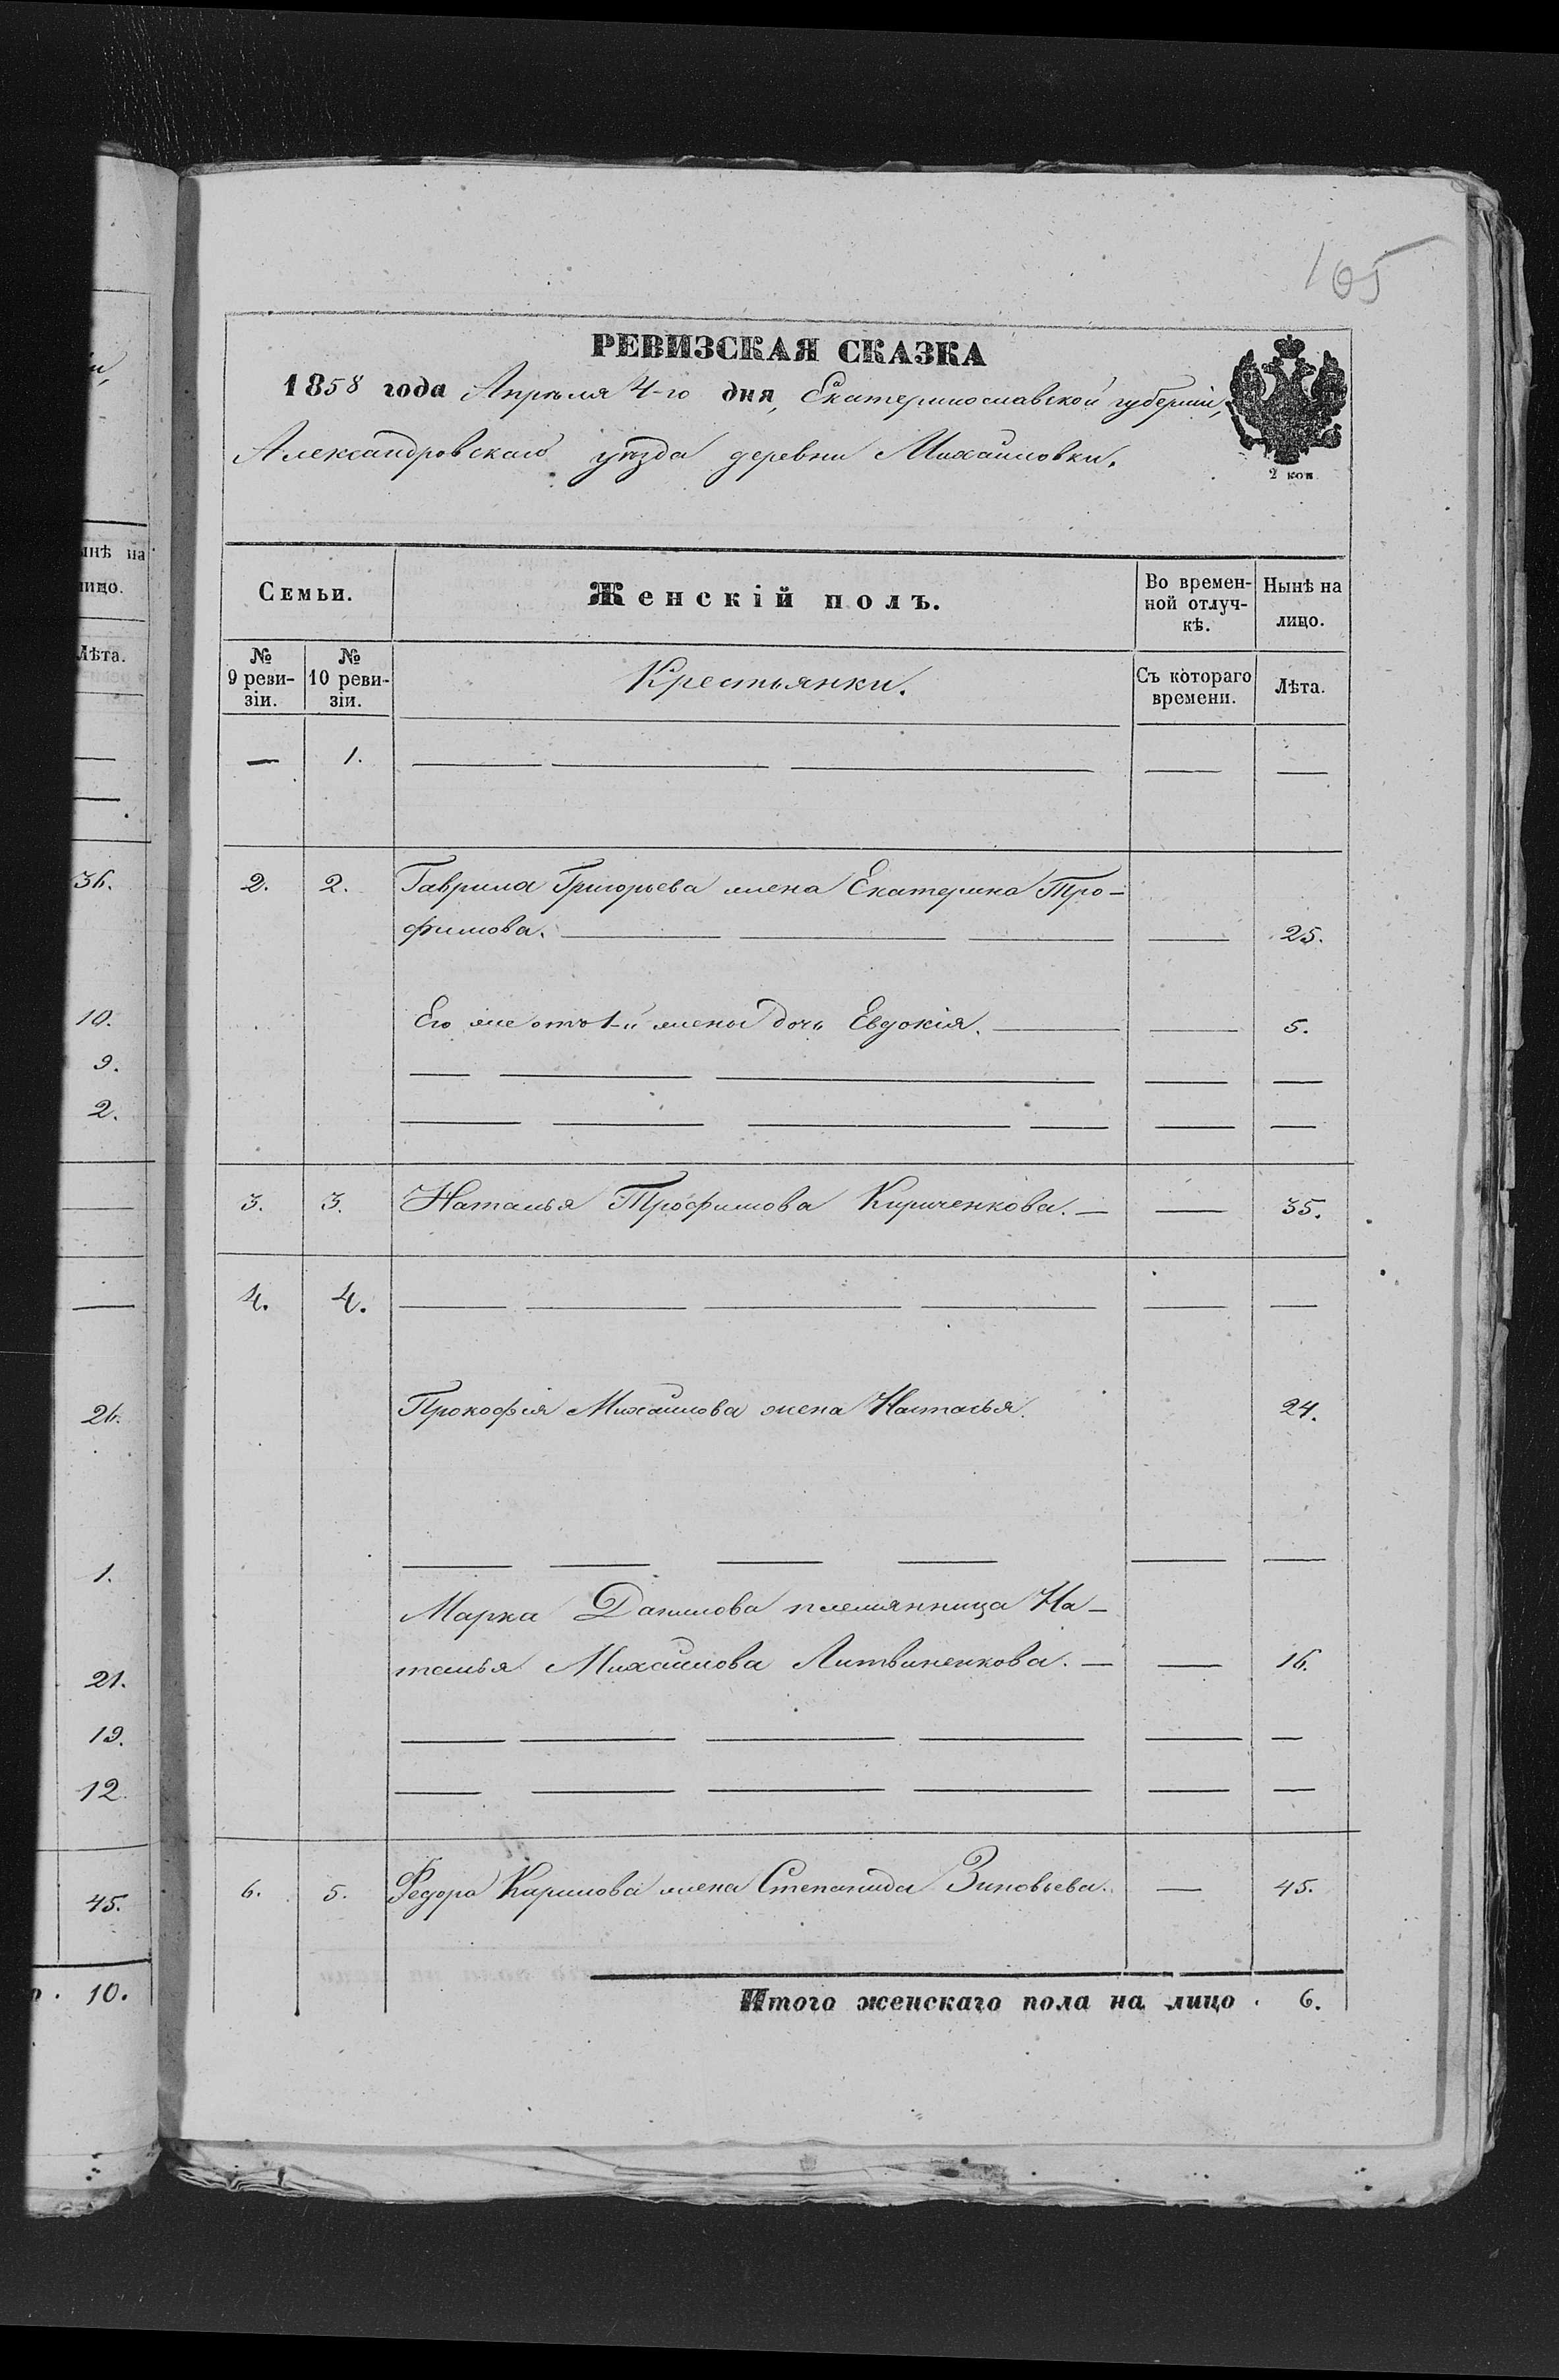 165
РЕВИЗСКАЯ СКАЗКА
1858 года Апрѣля 4-го дня, Екатеринославской губерніи,
Александровскаго уѣзда деревни Михайловки.
2 коп.
Семьи.
Женскій полъ.
Во времен-
ной отлуч-
кѣ.
Нынѣ на
лицо.
№
9 реви-
зіи.
№
10 реви-
зіи.
Крестьянки.
Съ котораго
времени.
Лѣта.
— 1. — — — — —
2. 2. Гаврила Григорьева жена Екатерина Тро-
фимова. — — — — 25.
Его же отъ 1-й жены дочь Евдокія. — — 5.
— — — — —
— — — — — —
3. 3. Наталья Трофимова Кириченкова. — — 35.
4. 4. — — — — — —
Прокофія Михайлова жена Наталья. 24.
— — — — — —
Марка Данилова племянница На-
талья Михайлова Литвиненкова. — — 16.
— — — — — —
— — — — — —
6. 5. Федора Карпова жена Степанида Зиновьева. — 45.
Итого женскаго пола на лицо . 6.
инѣ на
лицо.
Лѣта.
—
—
36.
10.
9.
2.
—
—
26.
1.
21.
19.
12.
45.
10.